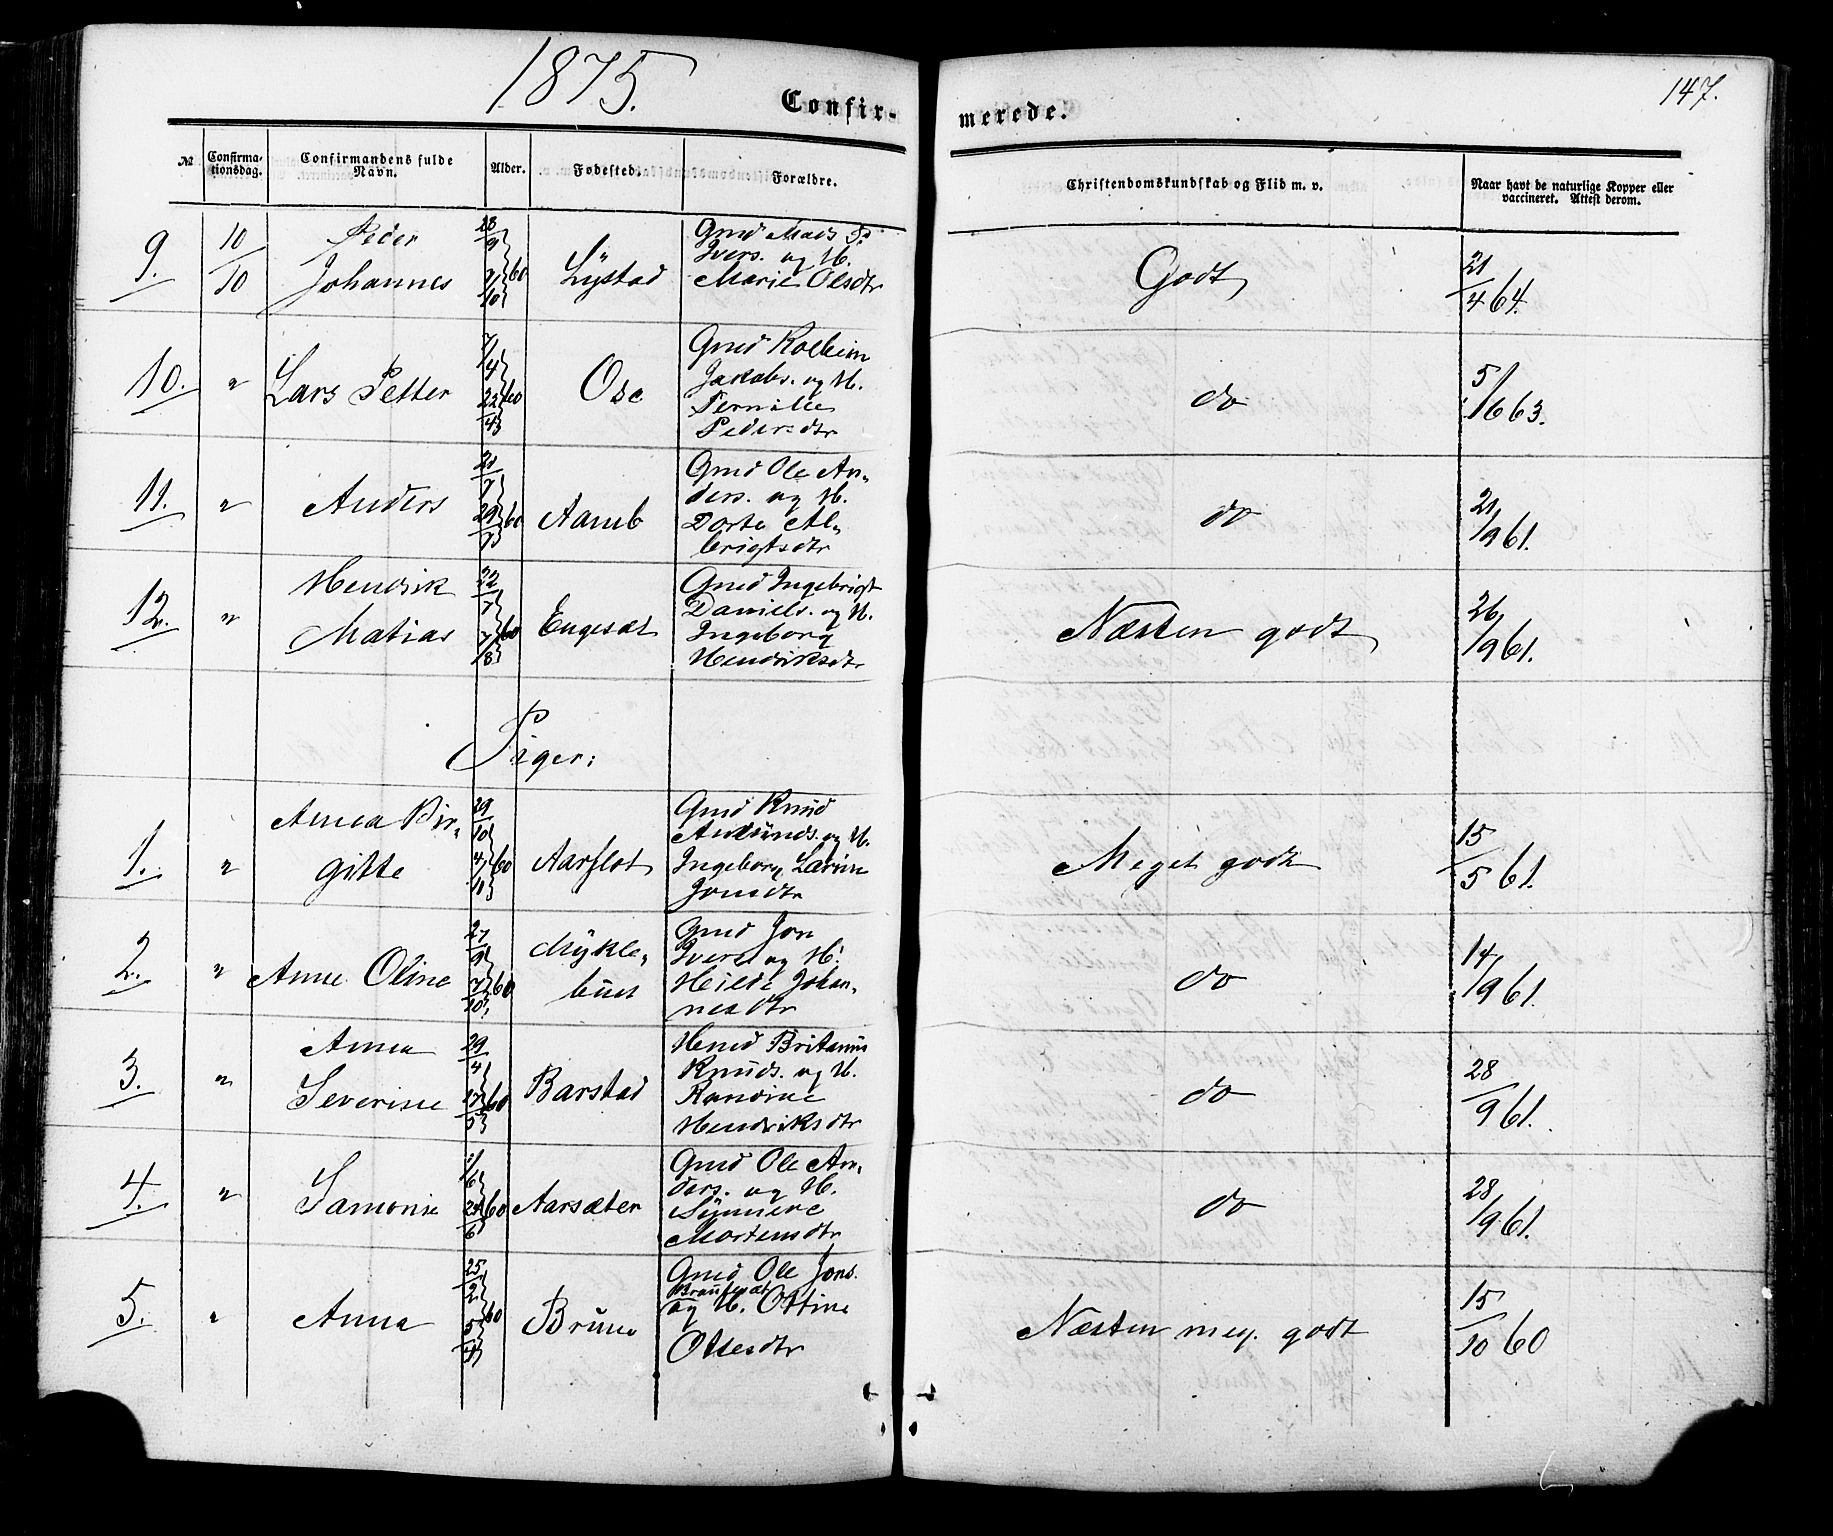 1875.
147.
Confir-
merede.
№
Confirma-
tionsdag.
Confirmandens fulde
Navn.
Alder.
Fødested.
Forældre.
Christendomskundskab og Flid m. v.
Naar havt de naturlige Kopper eller
vaccineret. Attest derom.
9.
10/10
Peder
Johannes
28/9
9/10 60
Lystad
Gmd Mads P.
Ivers. og H.
Marie Olsdtr
Godt
21/4 64.
10.
"
Lars Petter
7/4
22/4 60
Ose
Gmd Kolbein
Jakobs. og H.
Pernille
Pedersdtr
do
5/6 63.
11.
"
Anders
21/7
29/7 60
Aamb
Gmd Ole An-
ders. og H.
Dorte Al-
brigtsdtr
do
21/9 61.
12.
"
Hendrik
Matias
22/7
7/8 60
Engeset
Gmd Ingebrigt
Daniels. og H.
Ingeborg
Hendriksdtr
Næsten godt
26/9 61.
Piger:
1.
"
Anna Bir-
gitte
29/10
4/10 60
Aarflot
Gmd Knud
Amunds. og H.
Ingeborg Lavine
Jonsdtr
Meget godt
15/5 61.
2.
"
Anne Oline
27/9
7/10 60
Mykle-
bust
Gmd Jon
Ivers. og H.
Hilde Johan-
nesdtr
do
14/9 61.
3.
"
Anna
Severine
29/4
27/5 60
Barstad
Hmd Britanus
Knuds. og H.
Randine
Hendriksdtr
do
28/9 61.
4.
"
Samonie
1/6
24/6 60
Aarsæter
Gmd Ole An-
ders. og H.
Synneve
Mortensdtr
do
28/9 61.
5.
"
Anna
25/2
5/4 60
Brune
Gmd Ole Jons.
og H. Ottine
Ottesdtr
Næsten meg. godt
15/10 60